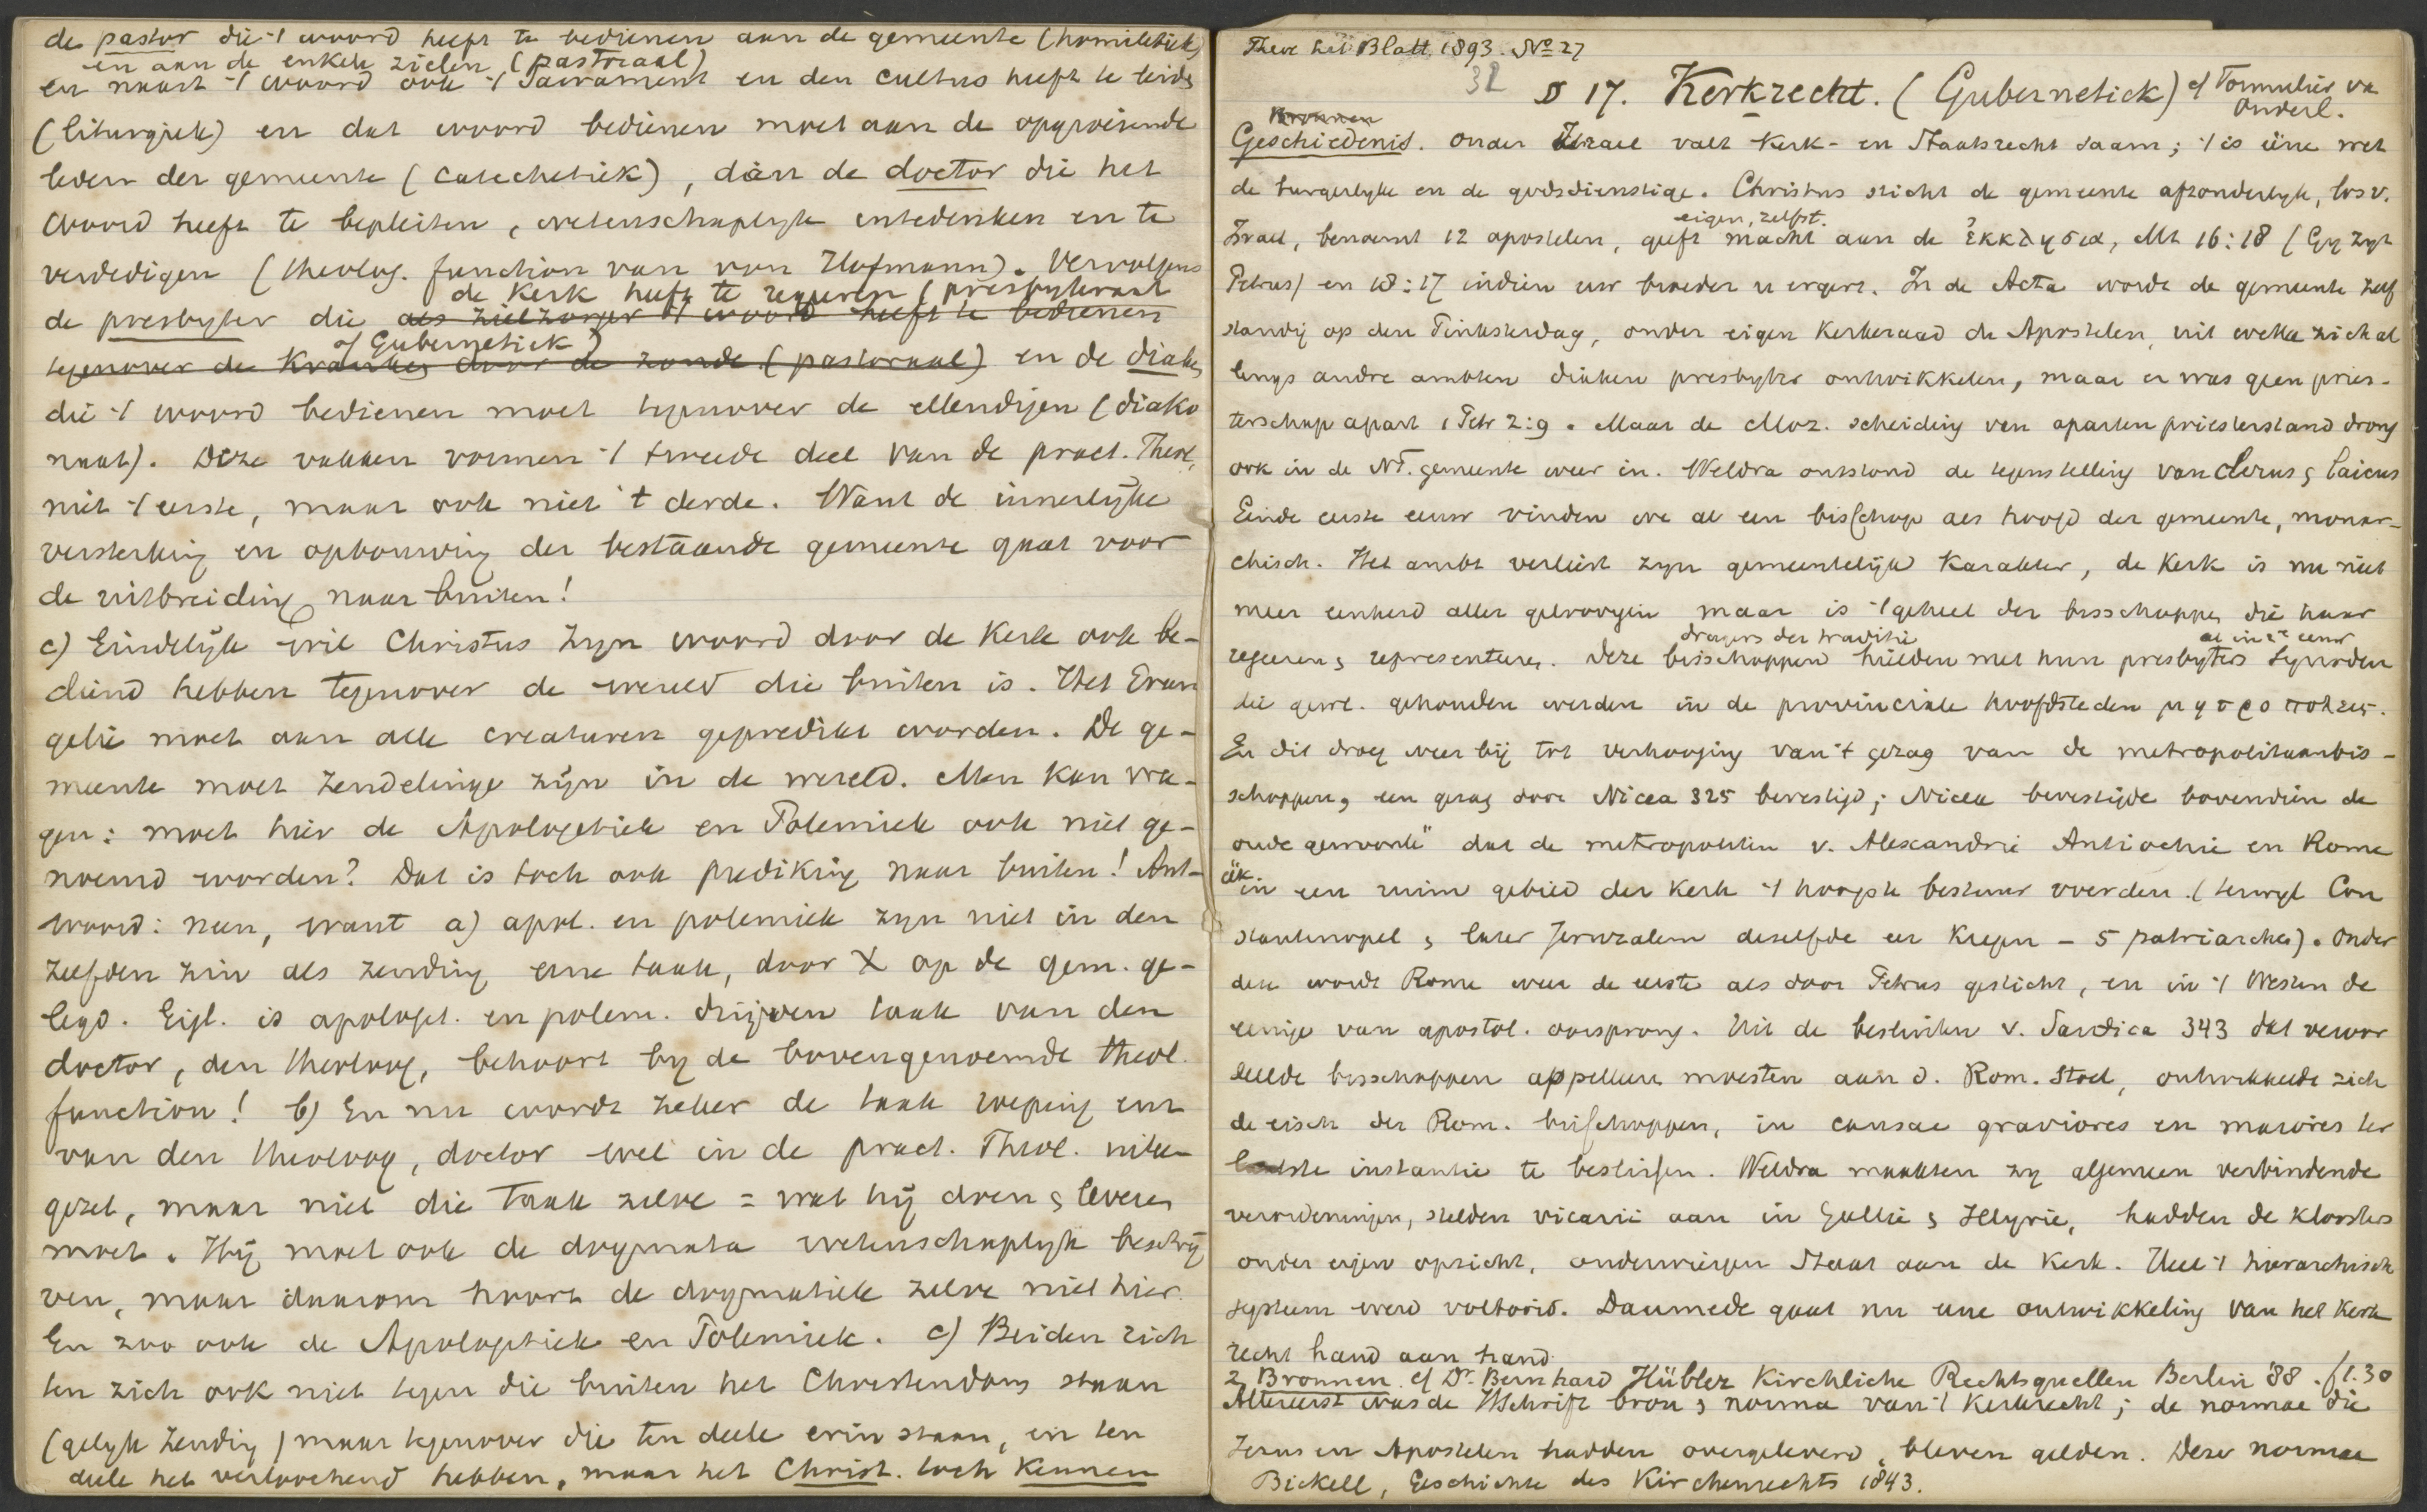 de pastor die 't woord heeft te bedienen aan de gemeente (homiletiek)
en aan de enkele zielen (pastoraal)
en naast 't woord ook 't Sacrament en den cultus heeft te leiden
(liturgiek) en dat woord bedienen moet aan de opgroeiende
leden der gemeente (catechetiek), dàn de doctor die het
woord heeft te bepleiten, wetenschaplyk entedenken en te
verdedigen (theolog. function van von Hofmann). Vervolgens
de kerk heeft te regeeren (presbyteraat
de presbyter die als zielzorger 't woord heeft te bedienen
of Gubernetiek)
tegenover de kranken door de zonde (pastoraal) en de diaken
die 't woord bedienen moet tegenover de ellendigen (diako
naat). Deze vakken vormen 't tweede deel van de pract. Theol,
niet 't eerste, maar ook niet 't derde. Want de innerlyke
versterking en opbouwing der bestaande gemeente gaat voor
de uitbreiding naar buiten!
c) Eindelijk wil Christus zyn woord door de Kerk ook be-
diend hebben tegenover de wereld die buiten is. Het Evan
gelie moet aan alle creaturen gepredikt worden. De ge-
meente moet zendelinge zijn in de wereld. Men kan vra-
gen: moet hier de Apologetiek en Polemiek ook niet ge-
noemd worden? Dat is toch ook prediking naar buiten! Ant-
woord: neen, want a) apol. en polemiek zyn niet in den
zelfden zin als zending eene taak, door X op de gem. ge-
legd. Eigl. is apologet. en polem. drijven taak van den
doctor, den theoloog, behoort by de bovengenoemde theol.
function! b) En nu wordt zeker de taak roeping enz
van den theoloog, doctor wel in de pract. Theol. uitee-
gezet, maar niet die taak zelve = wat hij doen & leveren
moet. Hij moet ook de dogmata wetenschaplyk beschrij
ven, maar daarom hoort de dogmatiek zelve niet hier.
En zoo ook de Apologetiek en Polemiek. c) Beiden rich
ten zich ook niet tegen die buiten het Christendom staan
(gelyk zending) maar tegenover die ten deele erin staan, en ten
deele het verloochend hebben, maar het Christ. toch kennen
Theol. Lit. Blatt. 1893. No 27
32
§ 17. Kerkrecht. (Gubernetiek) cf Formulier va
onderl.
Bronnen
Geschiedenis. onder Israel valt Kerk- en Staatsrecht saam; 't is éene wet
de burgerlyke en de godsdienstige. Christus sticht de gemeente afzonderlyk, los v.
eigen, zelfst.
Israel, benoemt 12 apostelen, geeft macht aan de ἐκκλησια, Mt 16:18 (Gy zyt
Petrus) en 18:17 indien uw broeder u ergert. In de Acta wordt de gemeente zelf
standig op den Pinksterdag, onder eigen kerkeraad de Apostelen, uit welke zich al
lengs andre ambten diaken presbyter ontwikkelen, maar er was geen pries-
terschap apart 1 Petr 2:9. Maar de Moz. scheiding van aparten priesterstand drong
ook in de NT. gemeente weer in. Weldra ontstond de tegenstelling van clerus & laicus
Einde eerste eeuw vinden we al een bisschop als hoofd der gemeente, monar-
chisch. Het ambt verliest zyn gemeentelijk karakter, de Kerk is nu niet
meer eenheid aller geloovigen maar is 't geheel der bisschoppen die haar
dragers der traditie
al in 2e eeuw
regeeren & representeren. Deze bisschoppen hielden met hun presbyters Synoden
die gew. gehouden werden in de provinciale hoofdsteden μητροπολεις.
En dit droeg weer bij tot verhooging van 't gezag van de metropolitaanbis-
schoppen, een gezag door Nicea 325 bevestigd; Nicea bevestigde bovendien de
oude gewoonte" dat de metropolitin v. Alexandrie Antiochie en Rome
elk
in een ruim gebied der kerk 't hoogste bestuur voerden. (terwyl Con
stantinopel & later Jeruzalem dezelfde eer kregen - 5 patriarchen). Onder
deze wordt Rome weer de eerste als door Petrus gesticht, en in 't Westen de
eenige van apostol. oorsprong. Uit de besluiten v. Sardica 343 dat veroor
deelde bisschoppen appelleeren moesten aan d. Rom. Stoel, ontwikkelde zich
de eisch der Rom. bisschoppen, in causae graviores en maiores ter
laatste instantie te beslissen. Weldra maakten zy algemeen verbindende
verordeningen, stelden vicarii aan in Gallie & Illyrie, hadden de kloosters
onder eigen opzicht, onderwierpen Staat aan de Kerk. Heel 't hierarchisch
systeem werd voltooid. Daarmede gaat nu eene ontwikkeling van het Kerk
recht hand aan hand.
2, Bronnen cf Dr. Bernhard Hübler Kirchliche Rechtsquellen Berlin '88. f 1.30
Allereerst was de HSchrift bron & norma van 't Kerkrecht; de normae die
Jezus en Apostelen hadden overgeleverd, bleven gelden. Deze normae
Bickell, Geschichte des Kirchenrechts 1843.